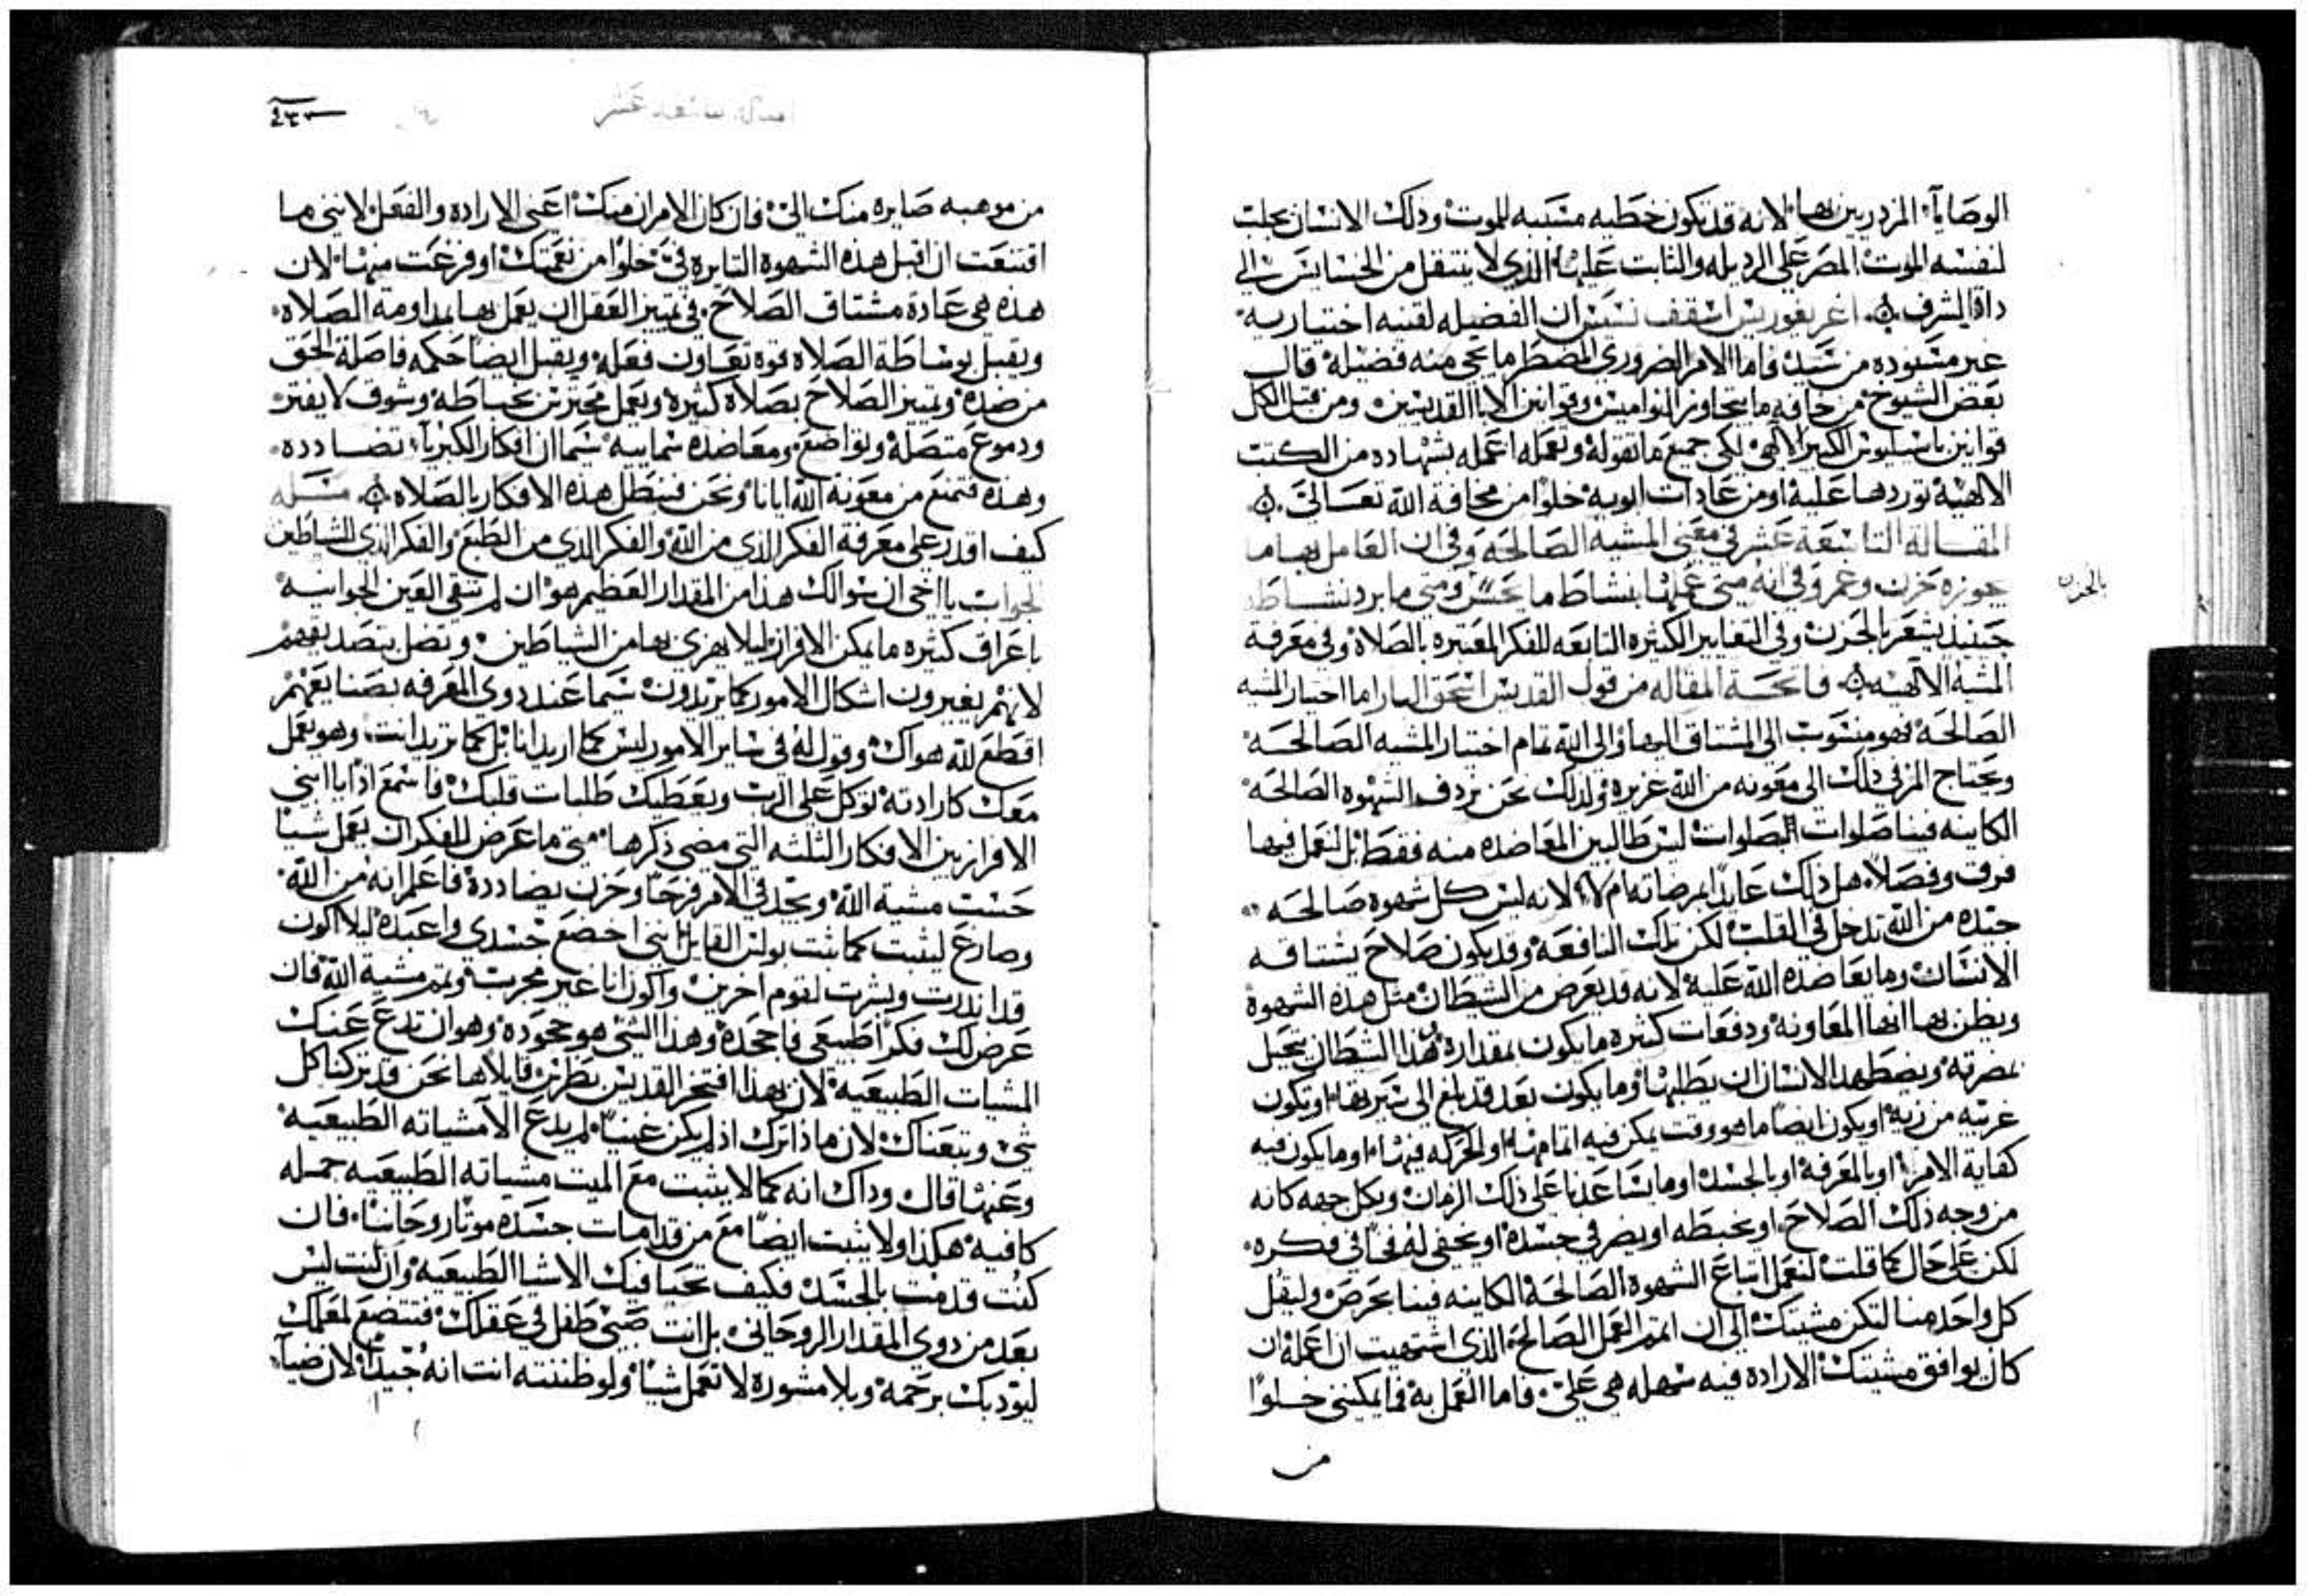 الوصايا المزدريين بها لانه قد تكون خطيه مسببه للموت وذلك الانسان يجلب
لنفسه الموت المصر على الرديله والثابت عليها الذي لا ينتقل من الخسايس الي
داة الشرف اغريغوريس اسقف نسس ان الفضيله لقنيه اختياريه
غير مسوده من سيد فاما الامر الضروري المضطر ما يجي منه فضيلة قال
بعض الشيوخ من خافه ما يتجاوز النواميس وقوانين الابا القديسين ومن قبل الكل
قوانين باسليوس الكبير الالهي لكي جميع ما تقوله وتعمله اعمله بشهاده من الكتب
الالهية توردها عليه او من عادات ابويه خلوا من مخافة الله تعالي
المقالة التاسعة عشر في معني المشيه الصالحة وفي ان العامل بها ما
يجوزه حزن وغم وفي انه متي عملها بنشاط ما يحس ومتي ما برد نشاطه
بالحزن
حينيذ يشعر بالحزن وفي التغايير الكثيره التابعه للفكر المغيره بالصلاة وفي معرفة
المشية الالهيه فاتحة المقاله من قول القديس اسحق البار اما اختيار المشيه
الصالحة فهو منسوب الي المشتاق اليها والي الله تمام اختيار المشيه الصالحة
ويحتاج المر في ذلك الى معونه من الله غزيرة ولذلك نحن نردف الشهوه الصالحة
الكاينه فينا صلوات بصلوات ليس طالبين المعاضده منه فقط بل لنعمل فيها
فرق وفصلا هل ذلك عايدا لمرضاته ام لا لانه ليس كل شهوه صالحه
جيده من الله تدخل في القلب لكن تلك النافعة وقد يكون صلاح يشتاقه
الانسان وما يعاضده الله عليه لانه قد يعرض من الشيطان مثل هذه الشهوة
ويظن بها انها المعاونة ودفعات كثيره ما يكون بمقداره هذا الشيطان يتحيل
بمضرته ويضطهد الانسان ان يطلبها وما يكون بعد قد بلغ الى سيرتها او تكون
غريبه من زيه او يكون ايضا ما هو وقت يمكن فيه اتمامها او الحركه فيها او ما يكون فيه
كفاية الامر او بالمعرفة او بالجسد او ما يساعدنا على ذلك الزمان وبكل جهه كانه
من وجه ذلك الصلاح او يخبطه او يضر في جسده او يخفي له فخا في فكره
لكن على حال كما قلت لنعمل اتباع الشهوة الصالحة الكاينه فينا بحرص وليقل
كل واحد منا لتكن مشيتك الى ان اتمم العمل الصالح الذي اشتهيت ان اعمله ان
كان يوافق مشيتك الارادة فيه سهله هي علي فاما العمل به فما يمكنني خلوا
من
٤٣٣
من موهبه صايره منك الي فان كان الامران منك اعني الاراده والفعل لانني ما
اقتنعت ان اقبل هذه الشهوة الثايرة في خلوا من نعمتك او فزعت منها لان
هذه هي عادة مشتاق الصلاح في تمييز العقل ان يعمل بها بمداومة الصلاه
ويقبل بوساطة الصلاه قوه تعاون فعله ويقبل ايضا حكمه فاصلة الحق
من ضده وتمييز الصلاح بصلاة كثيرة وبعمل محترس بحياطة وشوق لا يفتر
ودموع متصلة وتواضع ومعاضده سماييه سيما ان افكار الكبريا تضادده
وهذه تمنع من معونة الله ايانا ونحن فنبطل هذه الافكار بالصلاه مسله
كيف اقدر على معرفة الفكر الذي من الله والفكر الذي من الطبع والفكر الذي للشياطين
الجواب يا اخي ان سوالك هذا من المقدار العظيم هو ان لم تنقي العين الجوانيه
باعراق كثيره ما يمكن الافراز ليلا يهزي بها من الشياطين وتضل بتصديقهم
لانهم يغيرون اشكال الامور كما يريدون سيما عند ذوي المعرفه بصنايعهم
اقطع لله هواك وقول له في ساير الامور ليس كما اريد انا بل كما تريد انت وهو يعمل
معك كارادته توكل على الرب ويعطيك طلبات قلبك فاسمع اذا يا ابني
الافراز بين الافكار الثلثه التي مضى ذكرها متي ما عرض للفكر ان يعمل شيا
حسب مشية الله وتجد في الامر فرحا وحزن يضادده فاعلم انه من الله
وصارع ليثبت كما ثبت بولس القايل انني اخضع جسدي واعبده ليلا اكون
قد اندرت وبشرت لقوم اخرين واكون انا غير مجرب وتمم مشية الله فان
عرض لك فكرا طبيعي فاجحده وهذا الشي هو جحوده وهو ان تدع عنك
المشيات الطبيعيه لان بهذا افتخر القديس بطرس قايلا ها نحن قد تركنا كل
شي وتبعناك لان ماذا ترك اذ لم يكن غنيا لم يدع الا مشياته الطبيعيه
وعنها قال وداك انه كما لا يثبت مع الميت مشياته الطبيعيه جمله
كافية هكذا ولا يثبت ايضا مع من قد امات جسده موتا روحانيا فان
كنت قد مت بالجسد فكيف تحيا فيك الاشيا الطبيعيه وان كنت ليس
بعد من ذوي المقدار الروحاني بل انت صبي طفل في عقلك فتتضع لمعلمك
ليودبك برحمة وبلا مشورة لا تعمل شيا ولو ظننته انت انه جيدا لان ضيا